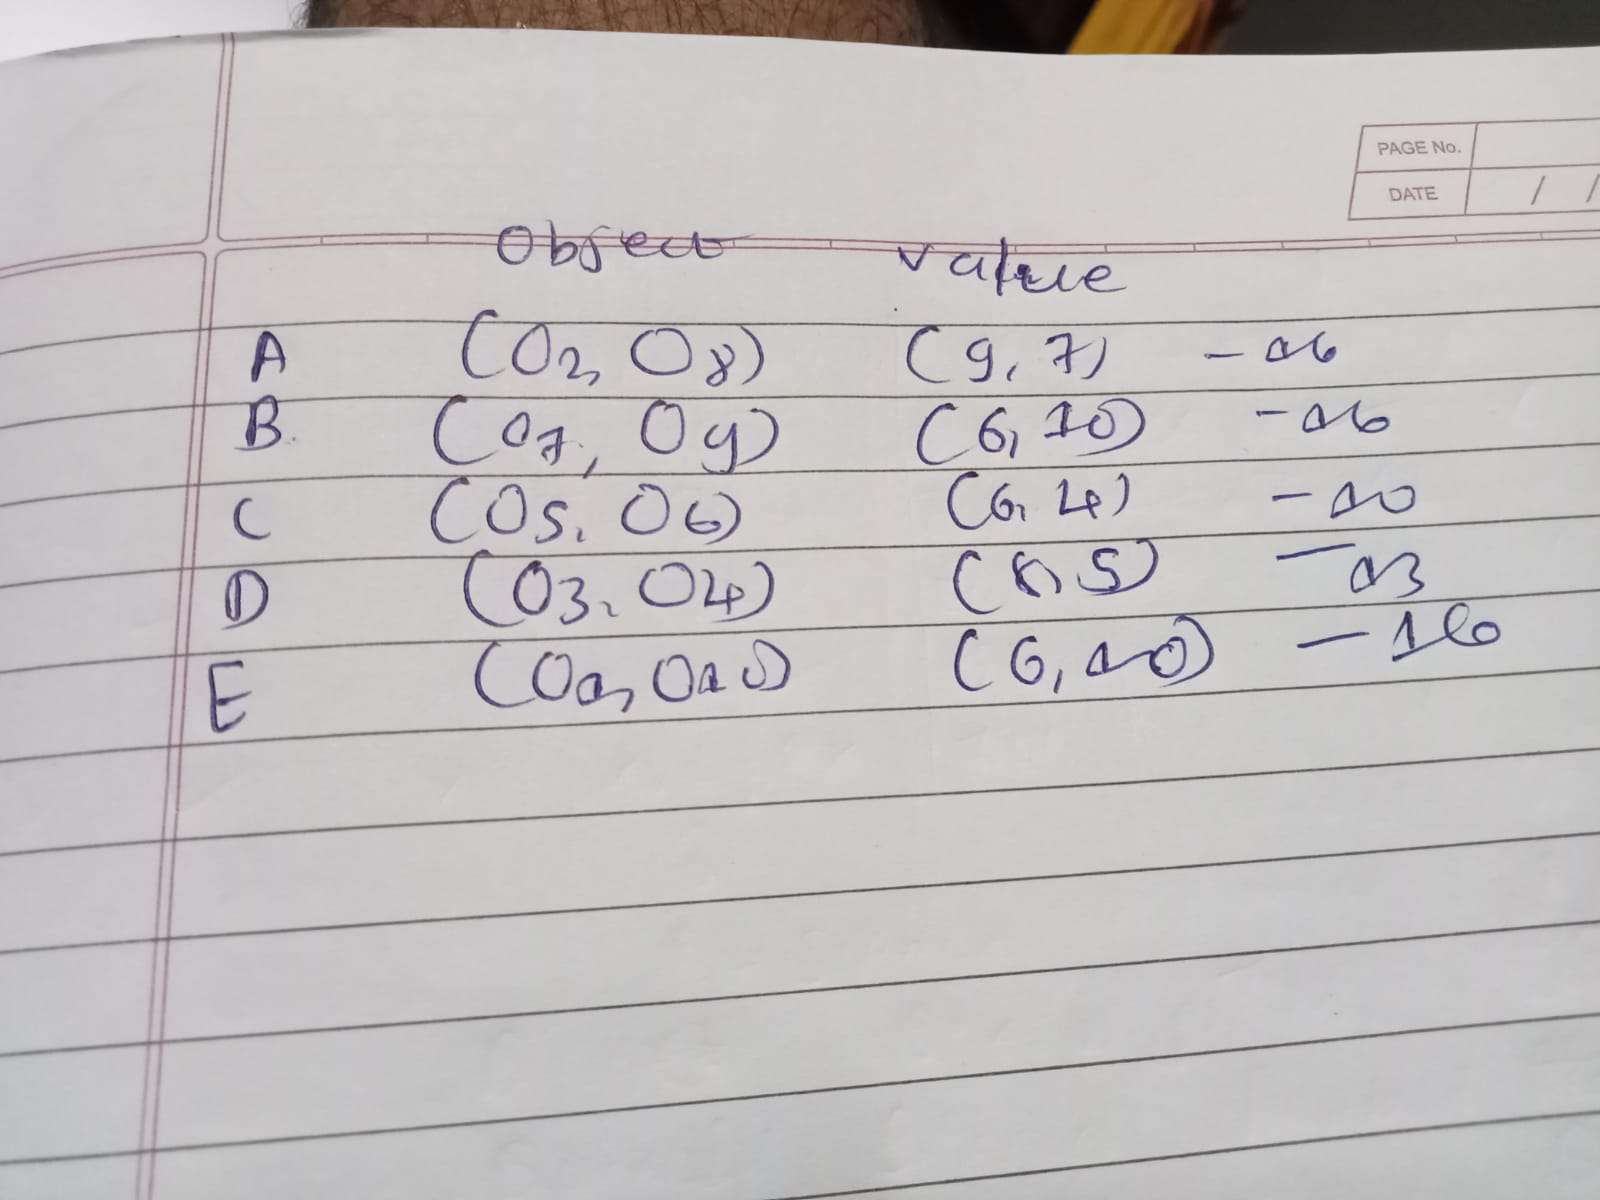 PAGE No.
DATE / /
Object Value
A (O2, O8) (9, 7) - 16
B. (O7, O9) (6, 10) - 16
C (O5, O6) (6, 4) - 10
D (O3, O4) (8, 5) - 13
E (O1, O10) (6, 10) - 16